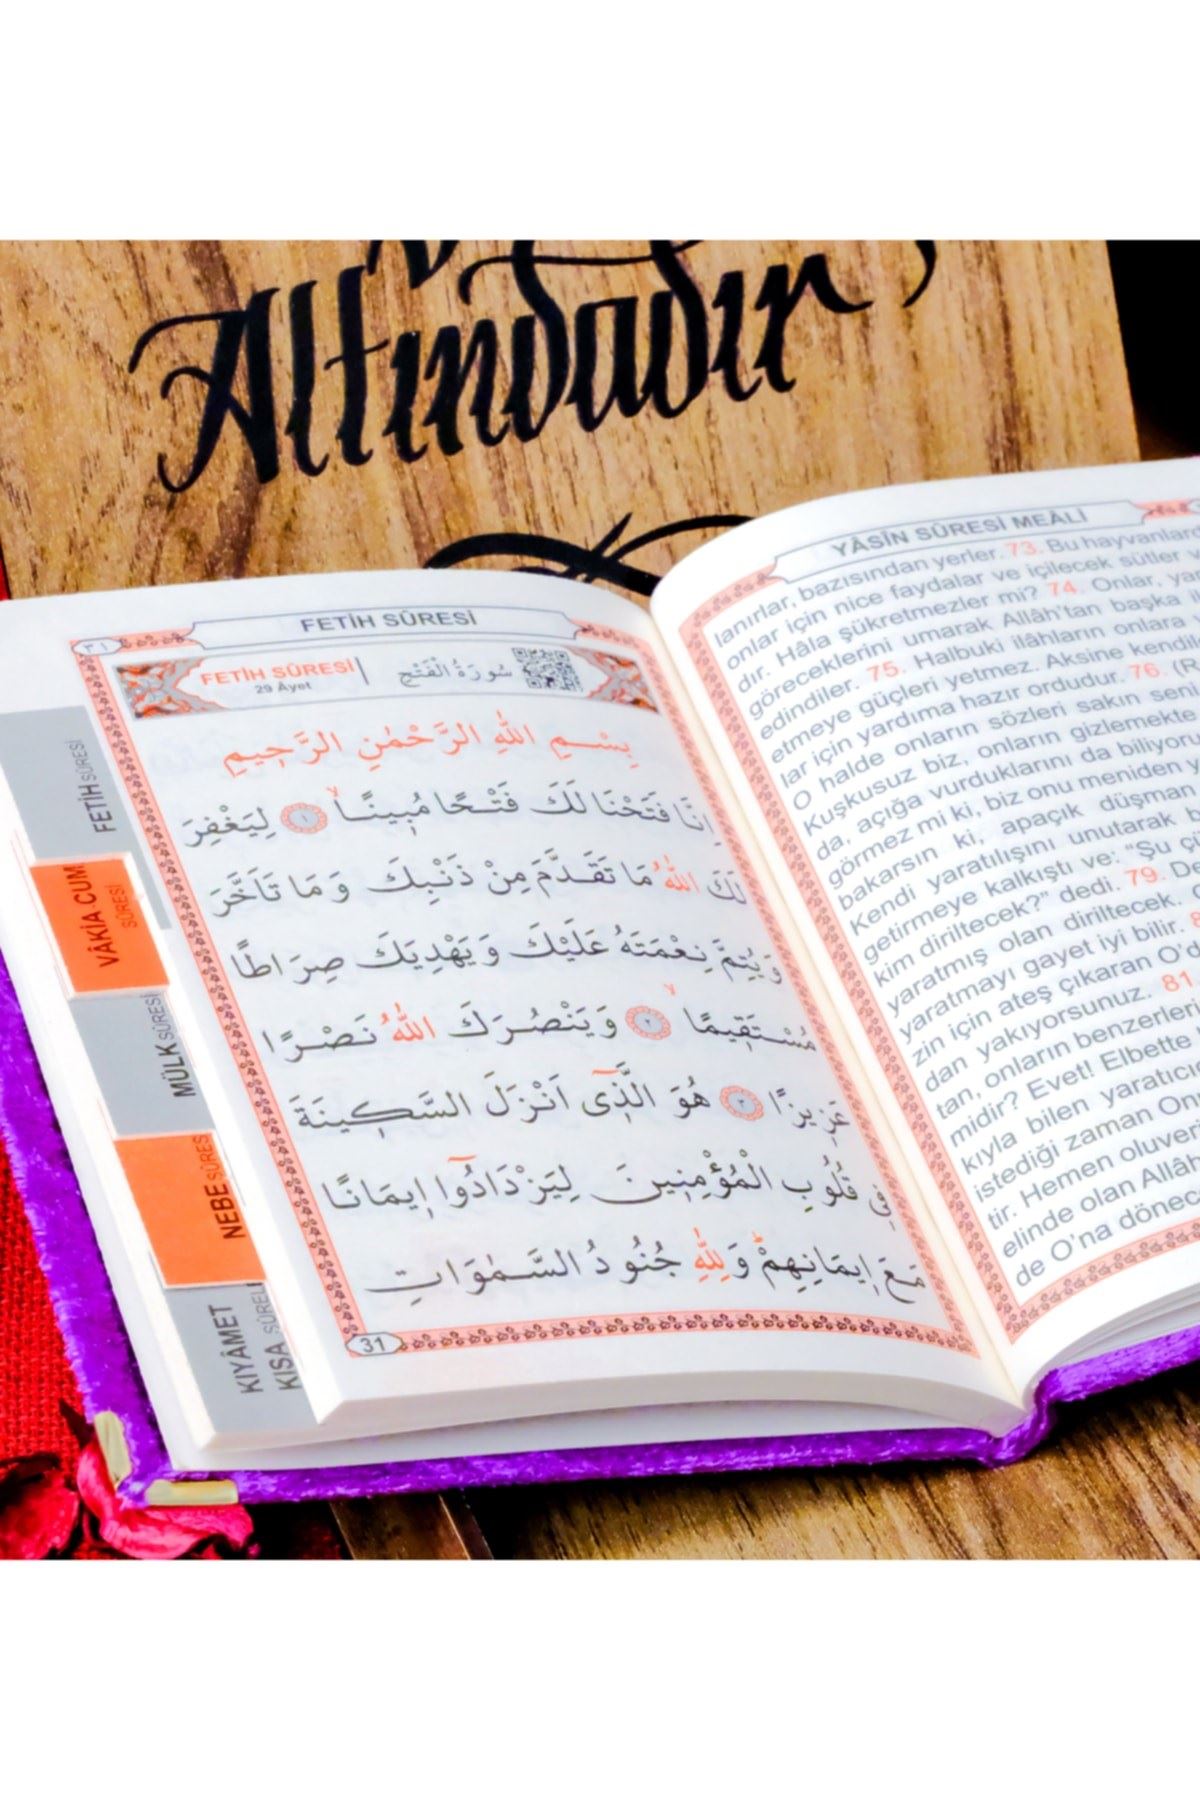 Altındadır
FETİH SÛRESİ
٣١
FETİH SÛRESİ
29 Âyet
سُورَةُ الْفَتْحِ
بِسْمِ اللّٰهِ الرَّحْمٰنِ الرَّحِيمِ
اِنَّا فَتَحْنَا لَكَ فَتْحًا مُبِينًاۙ ﴿١﴾ لِيَغْفِرَ
لَكَ اللّٰهُ مَا تَقَدَّمَ مِنْ ذَنْبِكَ وَمَا تَاَخَّرَ
وَيُتِمَّ نِعْمَتَهُ عَلَيْكَ وَيَهْدِيَكَ صِرَاطًا
مُسْتَقِيمًاۙ ﴿٢﴾ وَيَنْصُرَكَ اللّٰهُ نَصْرًا
عَزِيزًا ﴿٣﴾ هُوَ الَّذِٓى اَنْزَلَ السَّكِينَةَ
فِى قُلُوبِ الْمُؤْمِنِينَ لِيَزْدَادُٓوا اِيمَانًا
مَعَ اِيمَانِهِمْۜ وَلِلّٰهِ جُنُودُ السَّمٰوَاتِ
31
FETİH SÛRESİ
VÂKIA CUM
SÛRESİ
MÜLK SÛRESİ
NEBE SÛRES
KIYÂMET
KISA SÛREL
YÂSÎN SÛRESİ MEÂLİ
lanırlar, bazısından yerler. 73. Bu hayvanlard
onlar için nice faydalar ve içilecek sütler
dır. Hâla şükretmezler mi? 74. Onlar, ya
göreceklerini umarak Allâh'tan başka il
edindiler. 75. Halbuki ilâhların onlara
etmeye güçleri yetmez. Aksine kendil
lar için yardıma hazır ordudur. 76. (R
O halde onların sözleri sakın sen
Kuşkusuz biz, onların gizlemekte
da, açığa vurduklarını da biliyoru
görmez mi ki, biz onu meniden y
bakarsın ki, apaçık düşman
Kendi yaratılışını unutarak b
getirmeye kalkıştı ve: "Şu çü
kim diriltecek?" dedi. 79. De
yaratmış olan diriltecek.
yaratmayı gayet iyi bilir. 8
zin için ateş çıkaran O'd
dan yakıyorsunuz. 81.
tan, onların benzerler
midir? Evet! Elbette
kıyla bilen yaratıcıd
istediği zaman On
tir. Hemen oluveri
elinde olan Allâh
de O'na dönec